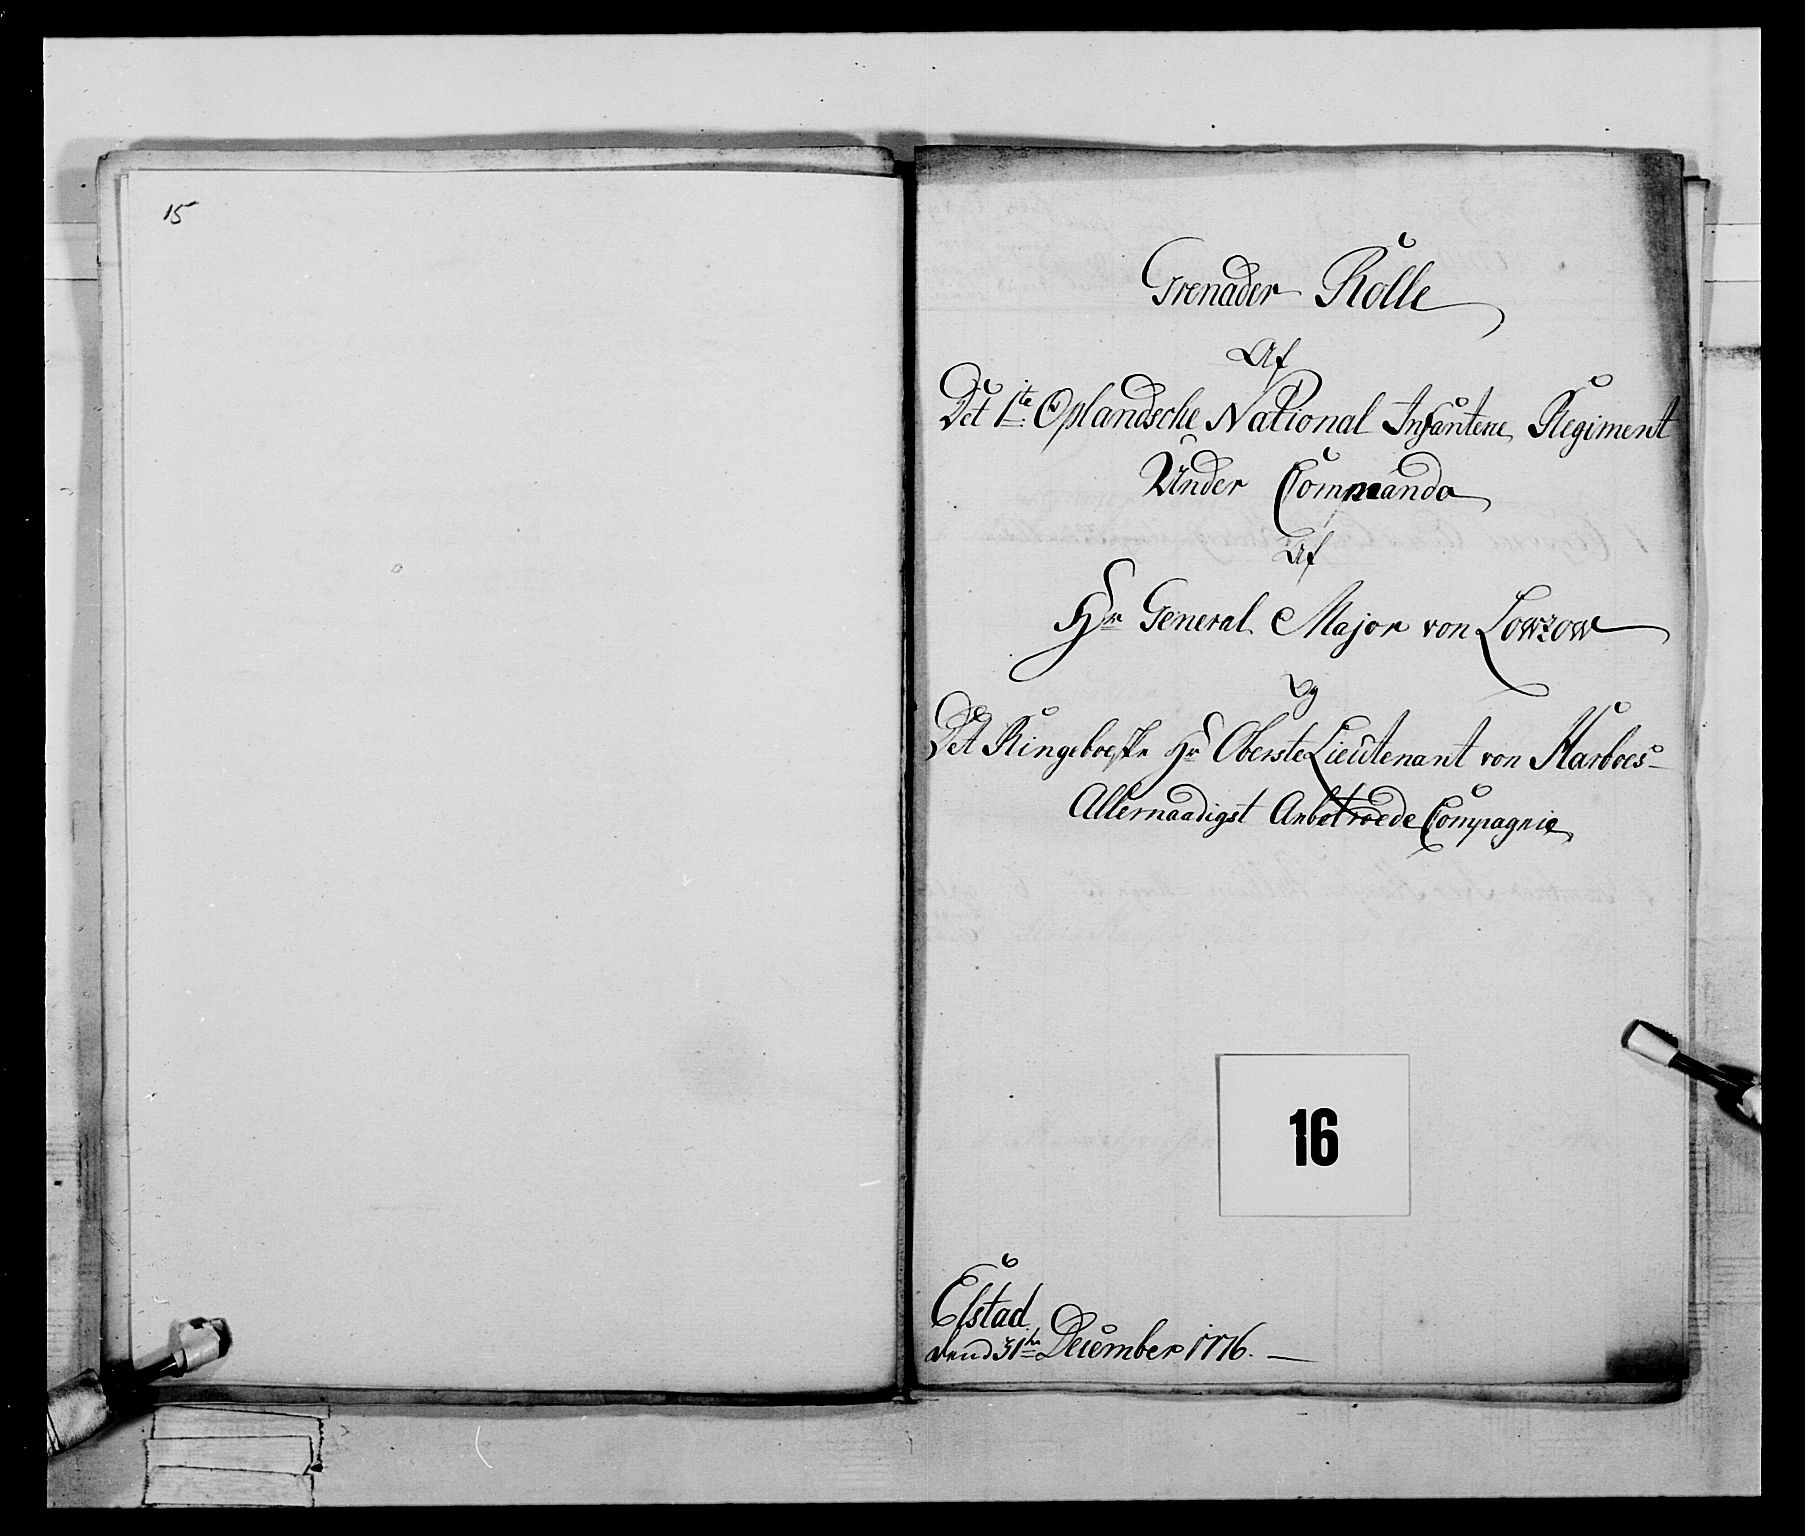 15
Grenader Rolle
Af
Det 1te Oplandsche National Infanterie Regiment
Under Commando
Af
Hr General Major von Lowzow
Og
Det Ringeboeske Hr Oberste Lieutenant von Harboes
Allernaadigst Anbetroede Compagnie
16
Elstad
dend 31te December 1776.